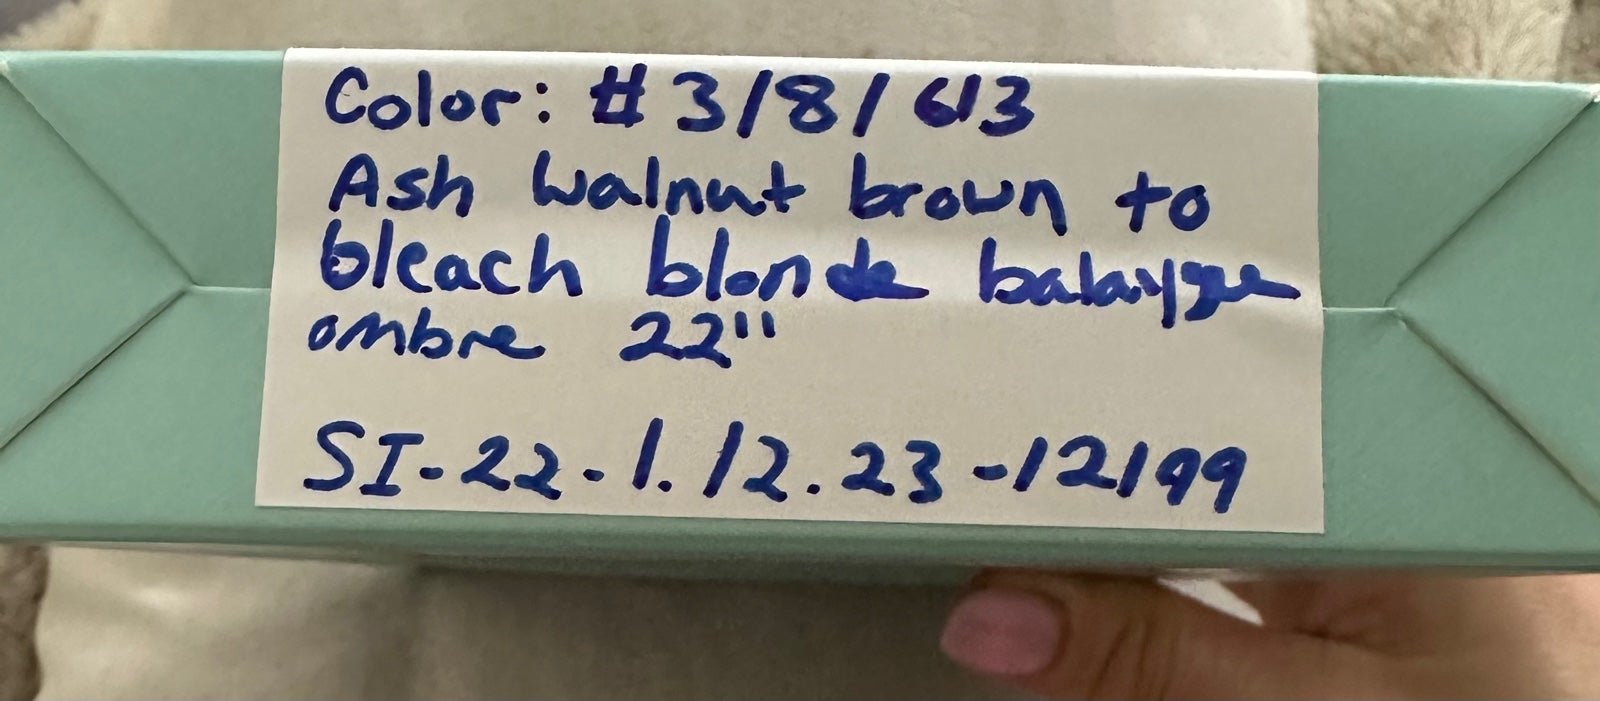 Color: #3/8/613
Ash walnut brown to
bleach blonde balayge
ombre 22"
SI-22-1.12.23-12199